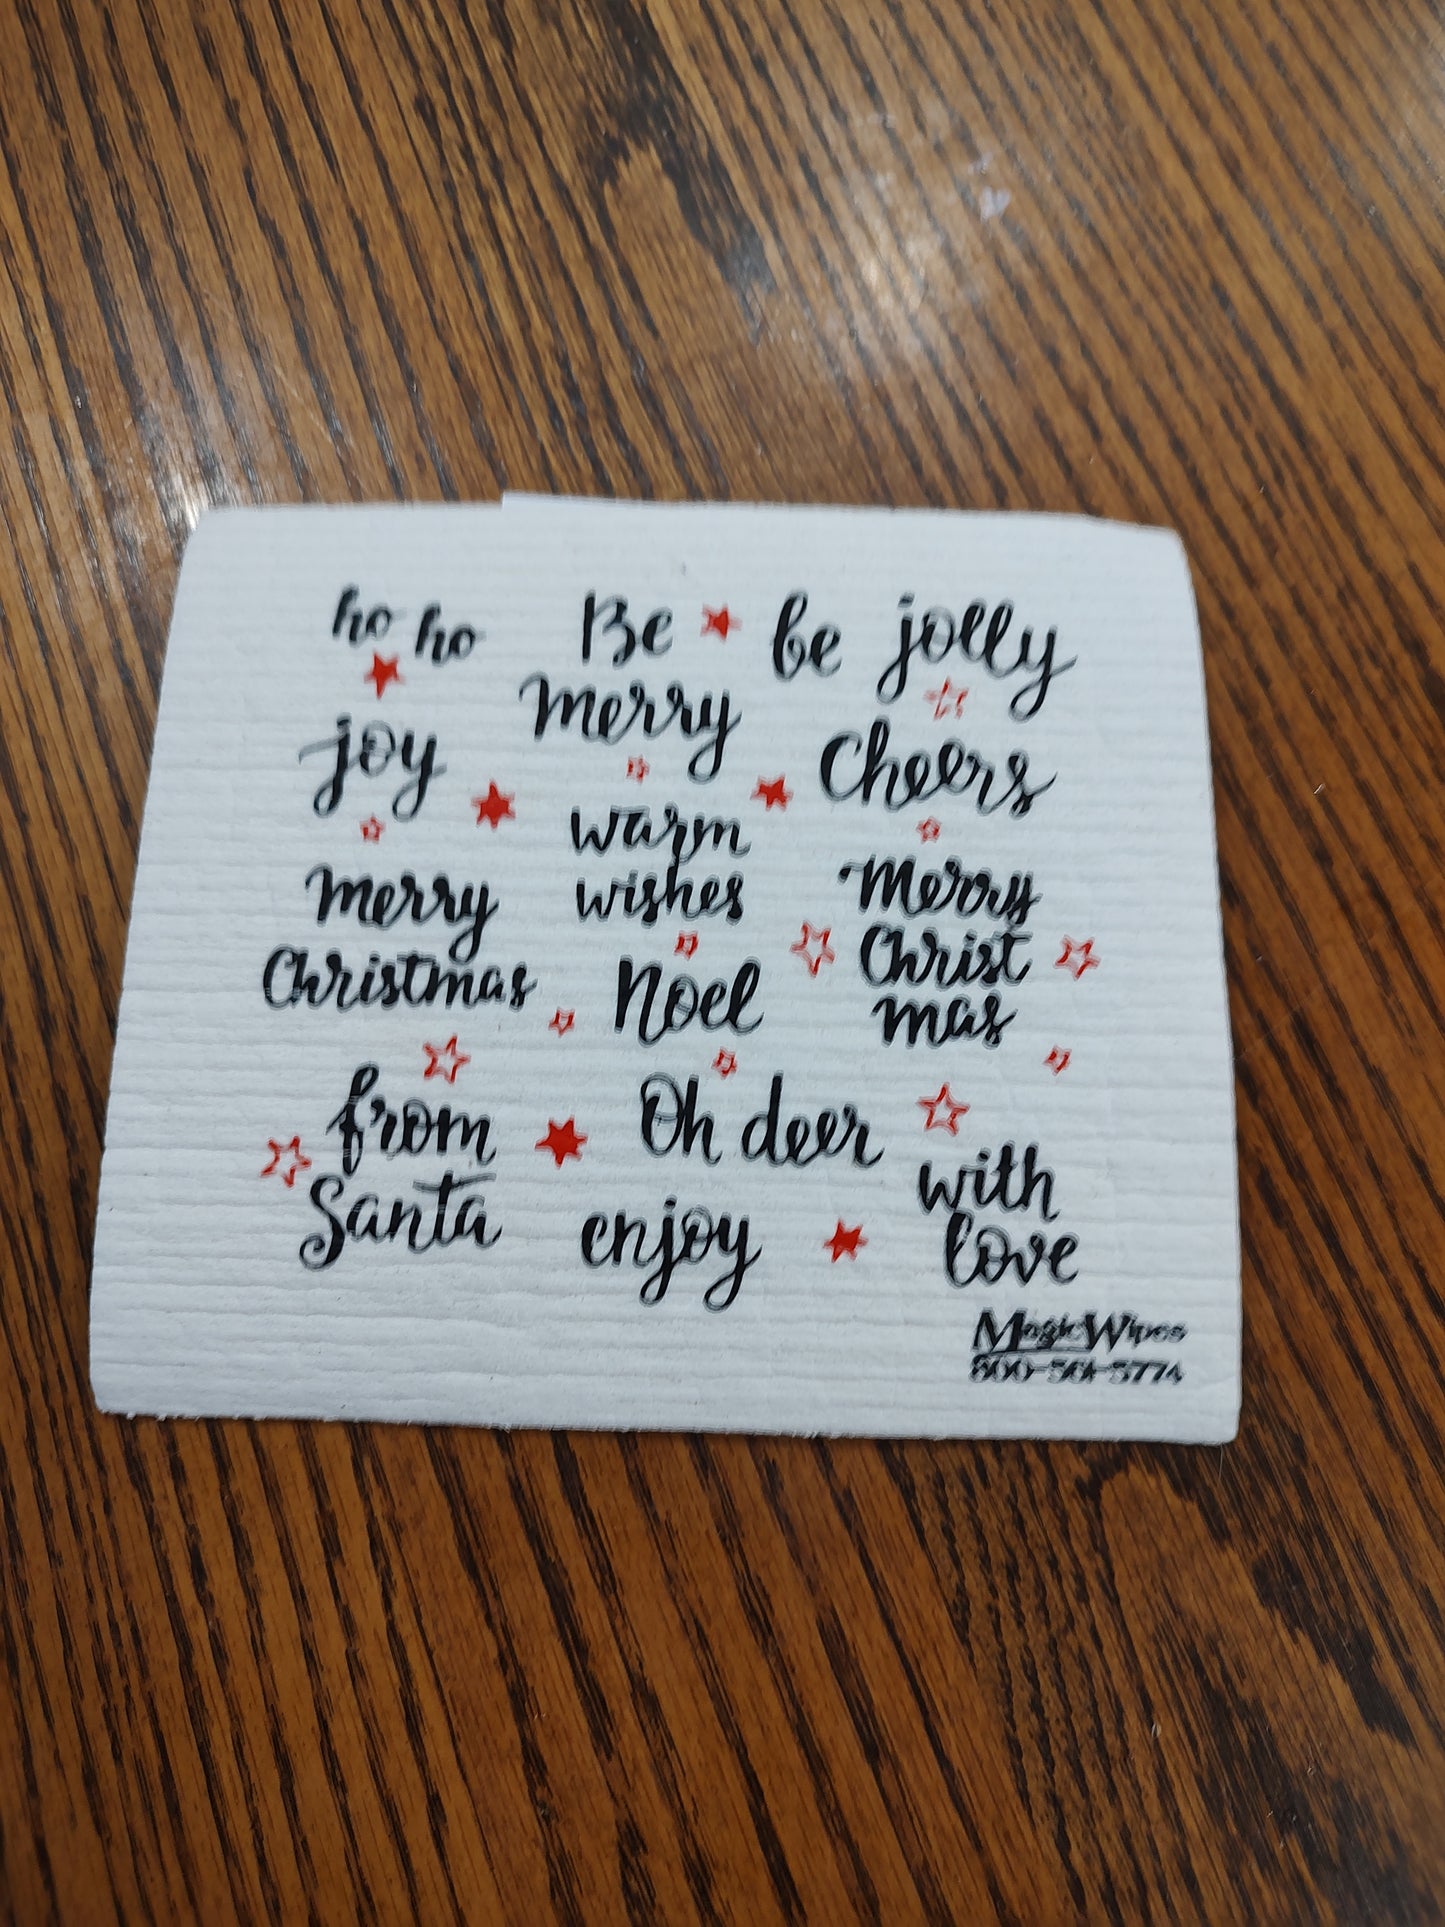 ho ho
Be
merry
be jolly
joy
Cheers
warm
wishes
merry
Christmas
Noel
Merry
Christ
mas
from
Santa
Oh deer
enjoy
with
love
MagicWipes
800-561-5774